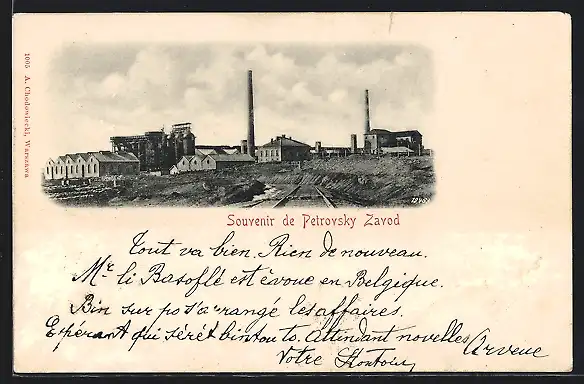 1005 A. Chodowiecki, Warszawa
Souvenir de Petrovsky Zavod
Tout va bien. Rien de nouveau.
Mr li Basoflé est évoue en Belgique.
Bin sur po s'a rangé les affaires.
Espérant qui sérét bintou to. Attindant novelles
Votre